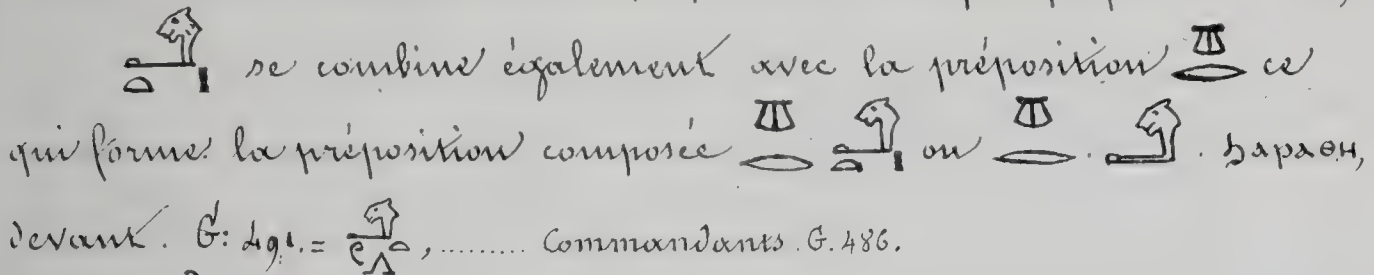 𓄂𓏏𓏤 se combine également avec la préposition 𓌨𓂋 ce
qui forme la préposition composée 𓌨𓂋 𓄂𓏏𓏤 ou 𓌨𓂋. 𓄂. ϧⲁⲣⲁⲑⲏ,
devant. G: 491. = 𓄂𓏏, ........ Commandants. G. 486.